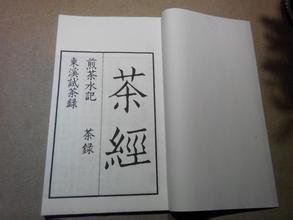 茶經
煎茶水記
茶錄
東溪試茶錄